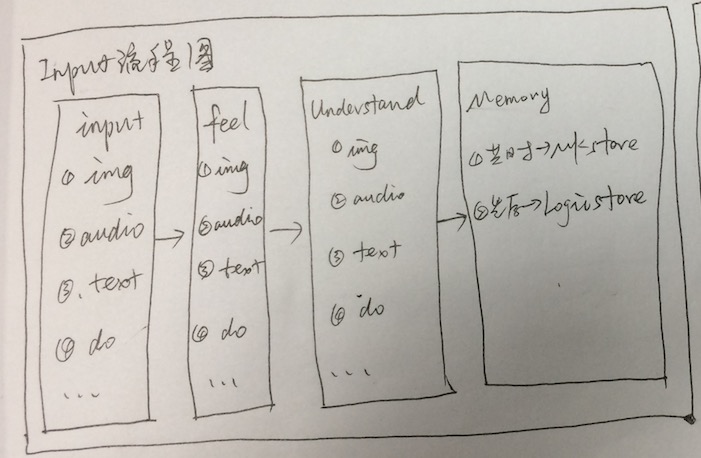 Input流程图
input
①img
②audio
③.text
④do
...
feel
①img
②audio
③text
④do
...
Understand
①img
②audio
③text
④do
...
Memory
①芒时→MKstore
②芒后→Logicstore